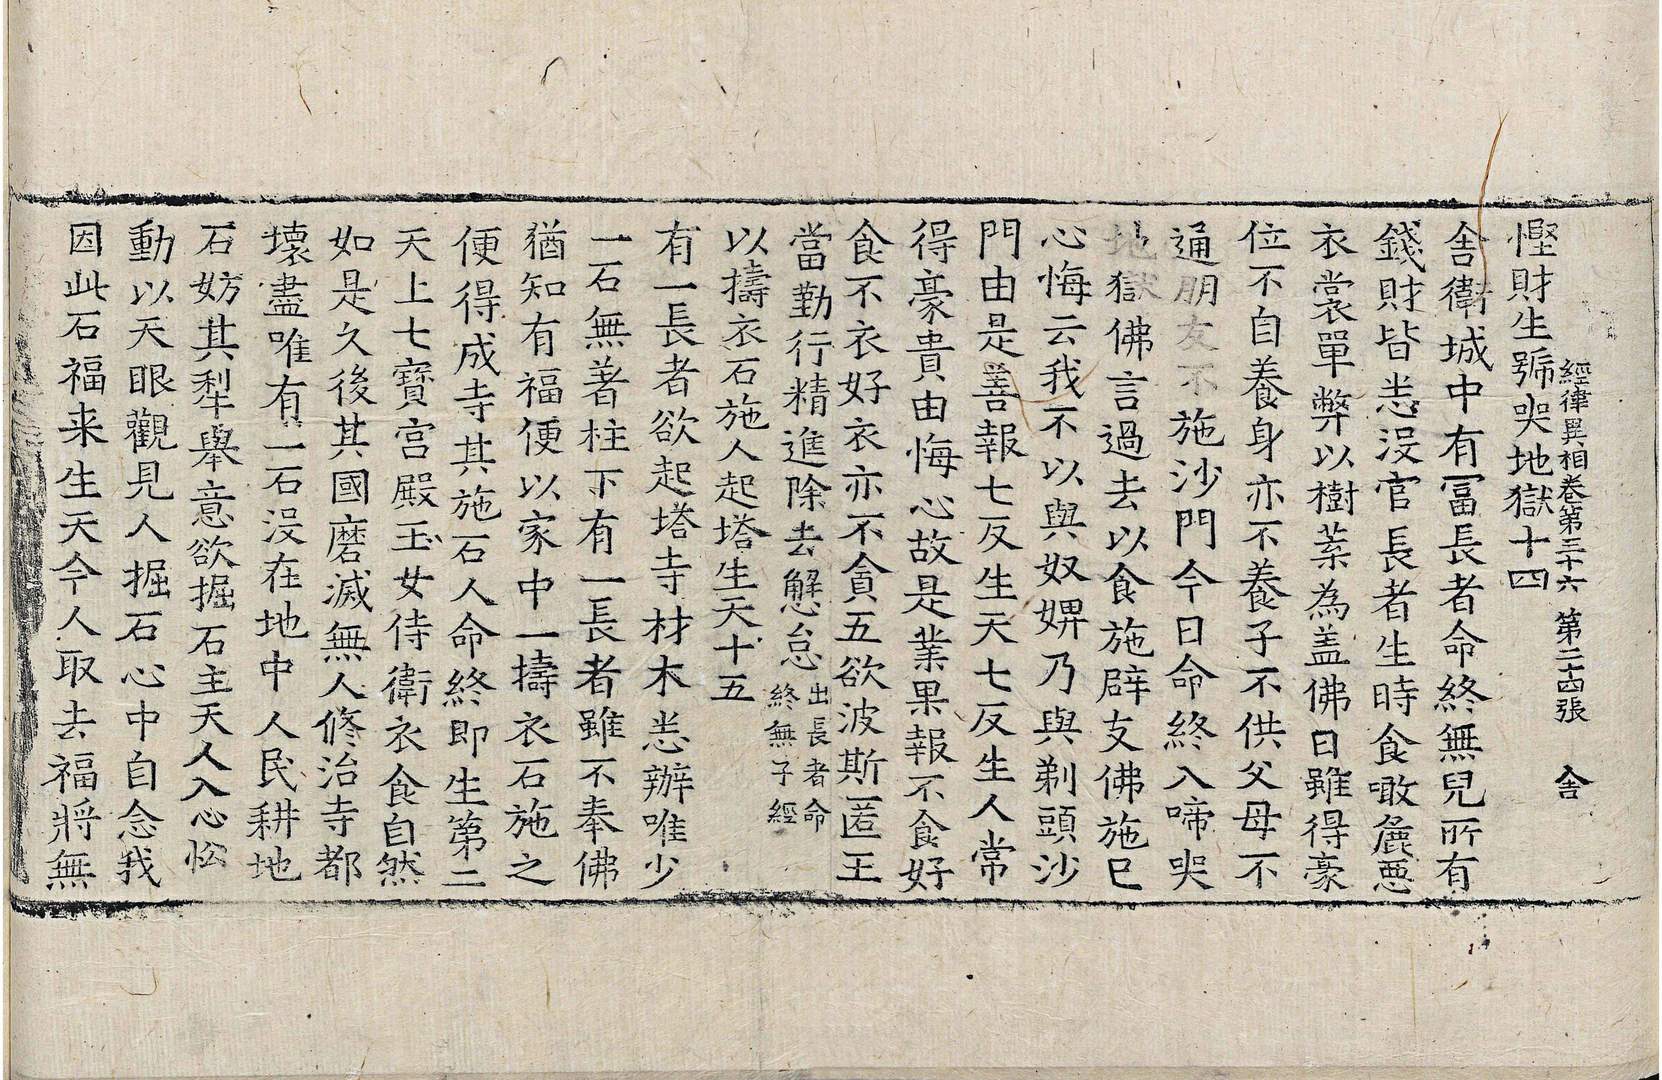 經律異相卷第三十六 第二十四張 舍
慳財生號哭地獄十四
舍衛城中有冨長者命終無兒所有
錢財皆悉沒官長者生時食噉麁惡
衣裳單弊以樹葉為盖佛曰雖得豪
位不自養身亦不養子不供父母不
通朋友不施沙門今日命終入啼哭
地獄佛言過去以食施辟支佛施已
心悔云我不以與奴婢乃與剃頭沙
門由是善報七反生天七反生人常
得豪貴由悔心故是業果報不食好
食不衣好衣亦不貪五欲波斯匿王
當勤行精進除去懈怠出長者命終無子經
以擣衣石施人起塔生天十五
有一長者欲起塔寺材木悉辦唯少
一石無著柱下有一長者雖不奉佛
猶知有福便以家中一擣衣石施之
便得成寺其施石人命終即生第二
天上七寶宮殿玉女侍衛衣食自然
如是久後其國磨滅無人修治寺都
壞盡唯有一石沒在地中人民耕地
石妨其犁舉意欲掘石主天人入心忪
動以天眼觀見人掘石心中自念我
因此石福来生天今人取去福將無